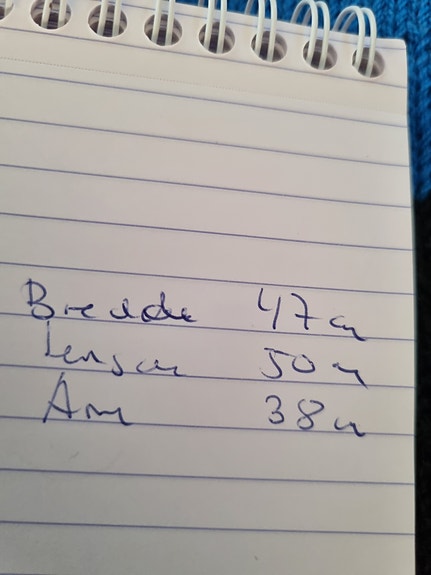 Breedte 47 cm
Lengte 50 cm
Arm 38 cm